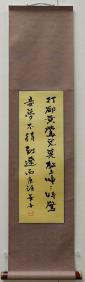 打却黃鶯兒莫教枝上啼々時驚
妾夢不得到遼西唐詩